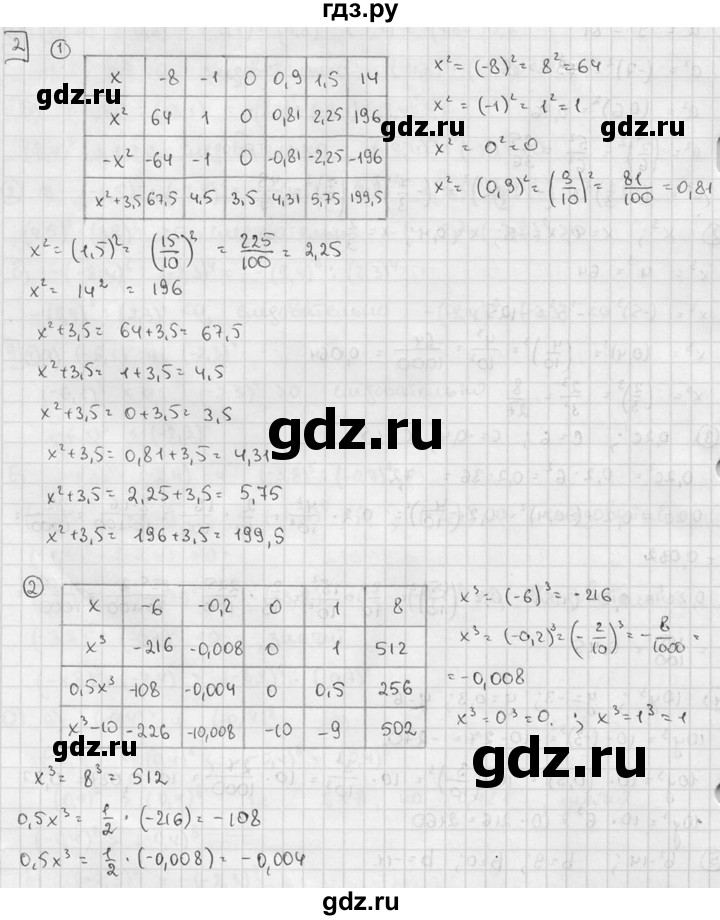 гдз.ру
2 ①
x -8 -1 0 0,9 1,5 14
x² 64 1 0 0,81 2,25 196
-x² -64 -1 0 -0,81 -2,25 -196
x²+3,5 67,5 4,5 3,5 4,31 5,75 199,5
x² = (-8)² = 8² = 64
x² = (-1)² = 1² = 1
gdz.ru gdz.ru
x² = 0² = 0
x² = (0,9)² = (9/10)² = 81/100 = 0,81
x² = (1,5)² = (15/10)² = 225/100 = 2,25
x² = 14² = 196
x²+3,5 = 64+3,5 = 67,5
x²+3,5 = 1+3,5 = 4,5
x²+3,5 = 0+3,5 = 3,5
gdz.ru
x²+3,5 = 0,81+3,5 = 4,31
x²+3,5 = 2,25+3,5 = 5,75
x²+3,5 = 196+3,5 = 199,5
②
x -6 -0,2 0 1 8
x³ -216 -0,008 0 1 512
0,5x³ -108 -0,004 0 0,5 256
x³-10 -226 -10,008 -10 -9 502
x³ = (-6)³ = -216
x³ = (-0,2)³ = (-2/10)³ = -8/1000 =
= -0,008
x³ = 0³ = 0. ; x³ = 1³ = 1
gdz.ru gdz.ru
x³ = 8³ = 512
0,5x³ = 1/2 · (-216) = -108
0,5x³ = 1/2 · (-0,008) = -0,004
gdz.ru